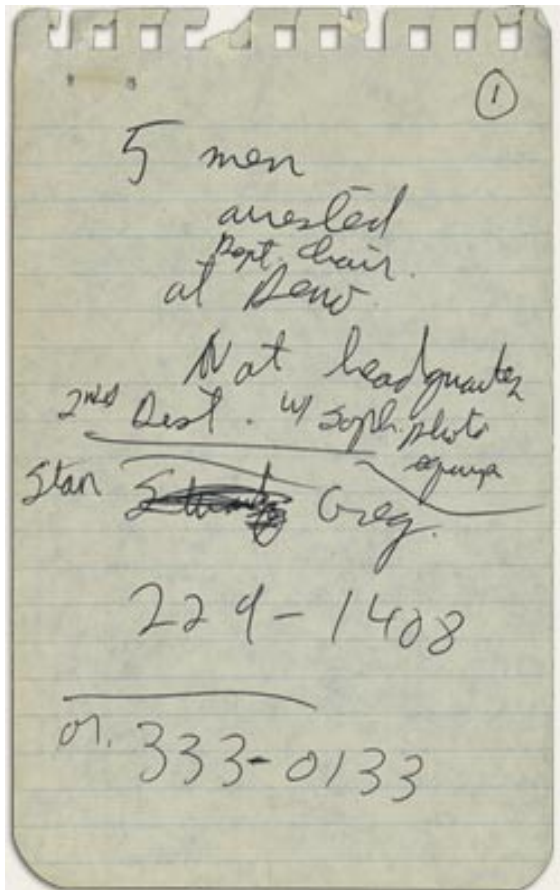 1
5 men
arrested
Dept. Chair.
at Demo.
Nat headquater
2nd Dist. w/ Soph. photo
equip
Stan Greg.
229-1408
or. 333-0133